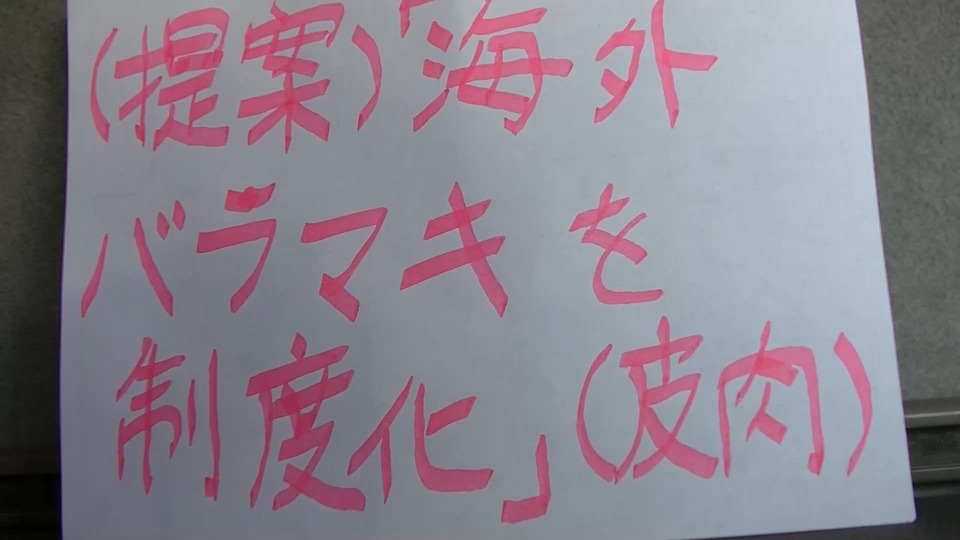 (提案)「海外
バラマキを
制度化」(皮肉)